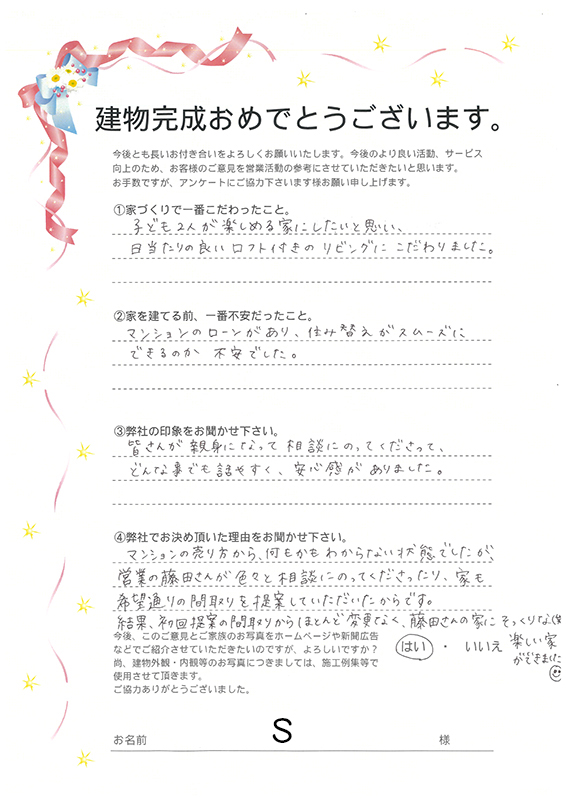 建物完成おめでとうございます。
今後とも長いお付き合いをよろしくお願いいたします。今後のより良い活動、サービス
向上のため、お客様のご意見を営業活動の参考にさせていただきたいと思います。
お手数ですが、アンケートにご協力下さいます様お願い申し上げます。
①家づくりで一番こだわったこと。
子ども2人が楽しめる家にしたいと思い、
日当たりの良いロフト付きのリビングにこだわりました。
②家を建てる前、一番不安だったこと。
マンションのローンがあり、住み替えがスムーズに
できるのか不安でした。
③弊社の印象をお聞かせ下さい。
皆さんが親身になって相談にのってくださって、
どんな事でも話やすく、安心感がありました。
④弊社でお決め頂いた理由をお聞かせ下さい。
マンションの売り方から、何もかもわからない状態でしたが、
営業の藤田さんが色々と相談にのってくださったり、家も
希望通りの間取りを提案していただいたからです。
結果、初回提案の間取りからほとんど変更なく、藤田さんの家にそっくりな
楽しい家
ができました
今後、このご意見とご家族のお写真をホームページや新聞広告
などでご紹介させていただきたいのですが、よろしいですか？
はい ・ いいえ
尚、建物外観・内観等のお写真につきましては、施工例集等で
使用させて頂きます。
ご協力ありがとうございました。
お名前 S 様